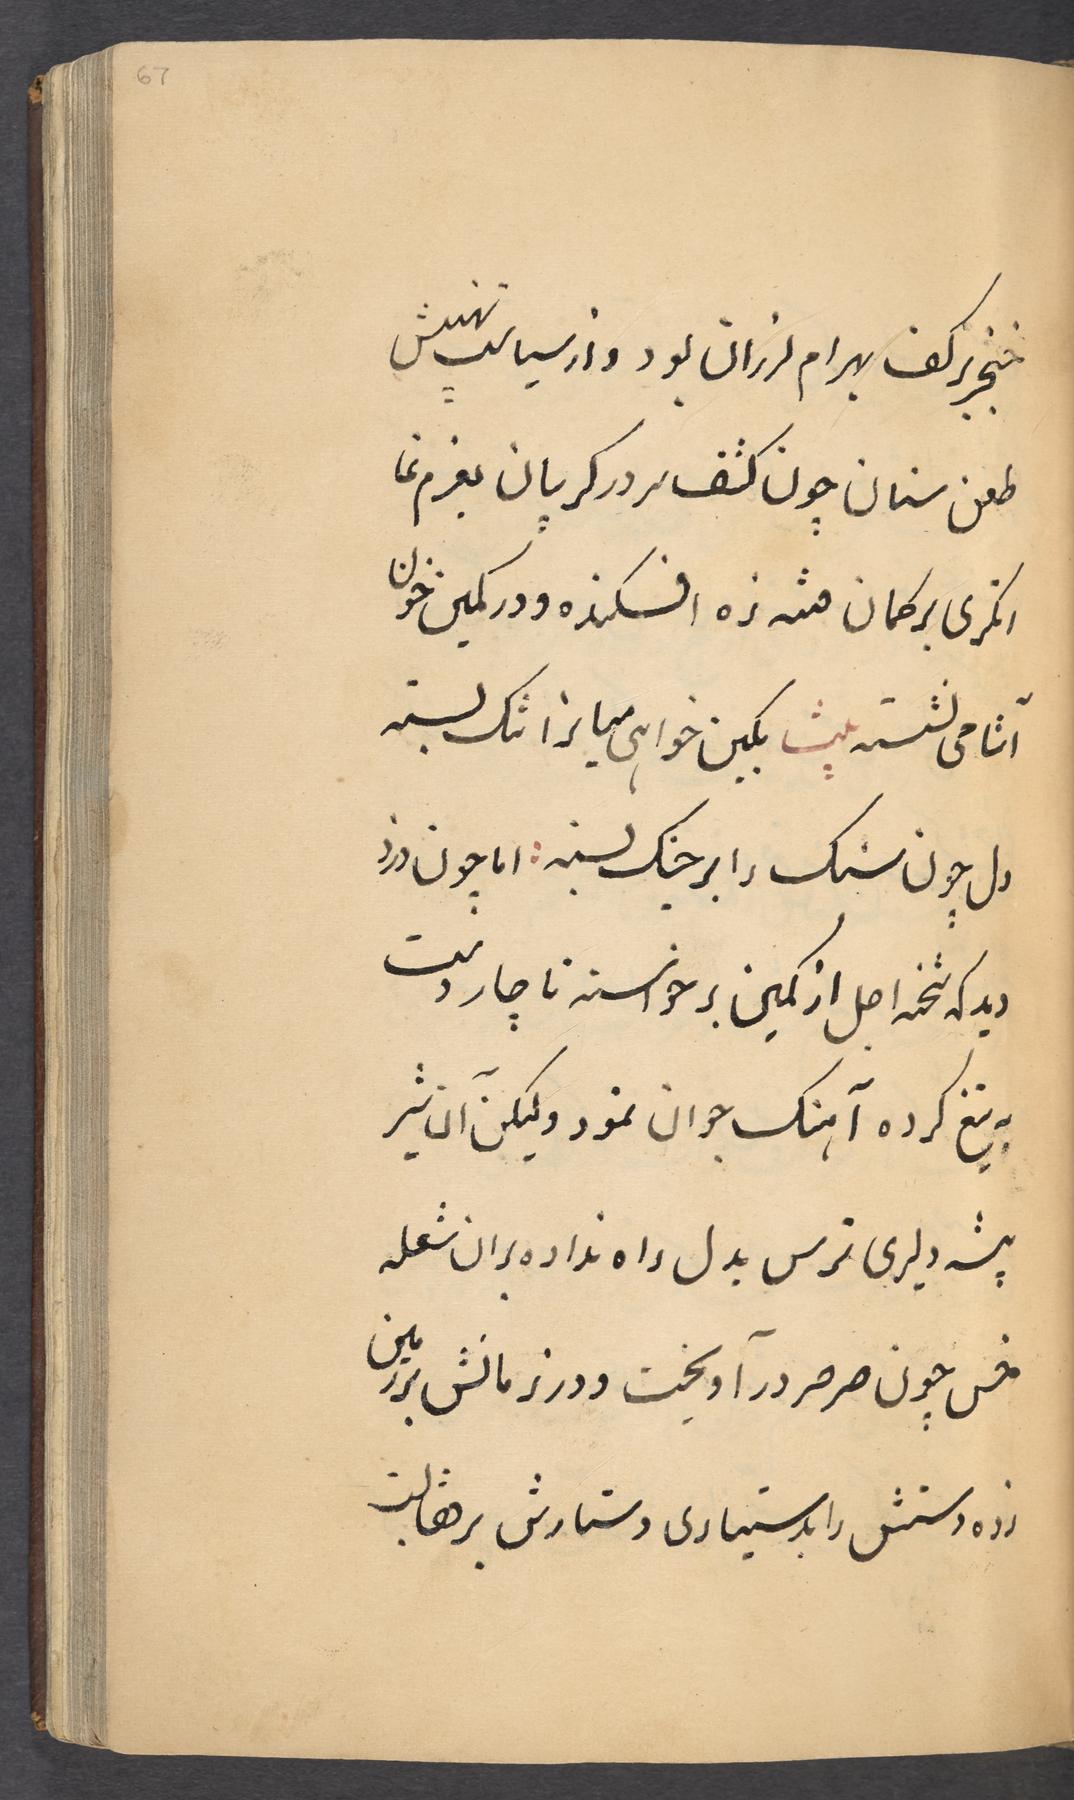 67
خنجر بر کف بهرام لرزان بود و از سیاست نهیبش
طعن سنان چون کشف سر در کریبان بعزم نما
انکری بر کمان فتنه زه افسکنده و در کمین خون
آشامی نشسته بیت بکین خواهی میانرا تنک بسته
دل چون سنک را بر جنک بسته : اما چون دزد
دید که شحنه اجل از کمین برخواسته ناچار دست
به تیغ کرده آهنک جوان نمود ولیکن آن شیر
پیشه دلیری ترس بدل راه نداده بران شعله
خس چون صرصر در آویخت و در زمانش بر زمین
زده دستش را بدستیاری دستارش بر قفا بست